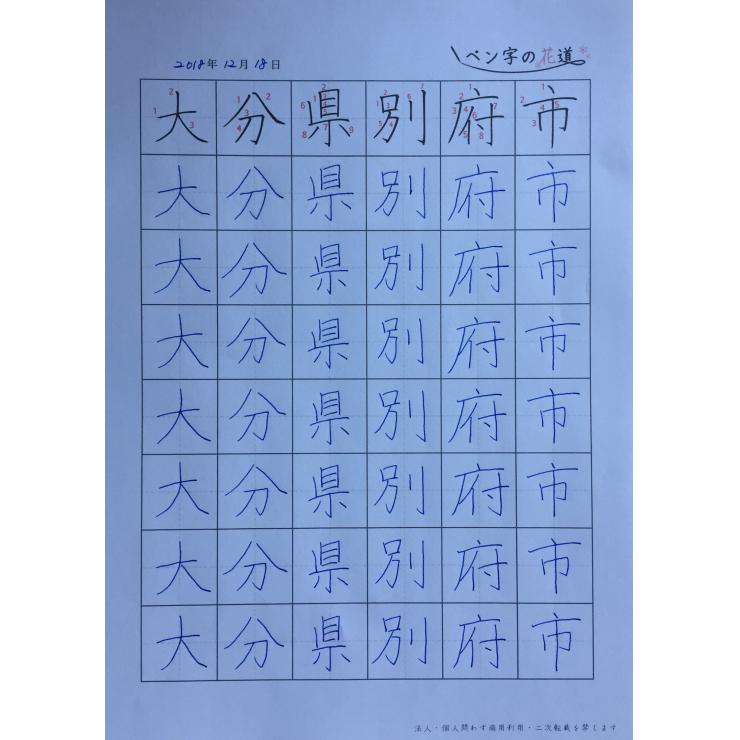 2018年12月18日
ペン字の花道
大分県別府市
大分県別府市
大分県別府市
大分県別府市
大分県別府市
大分県別府市
大分県別府市
大分県別府市
法人・個人問わず商用利用・二次転載を禁じます